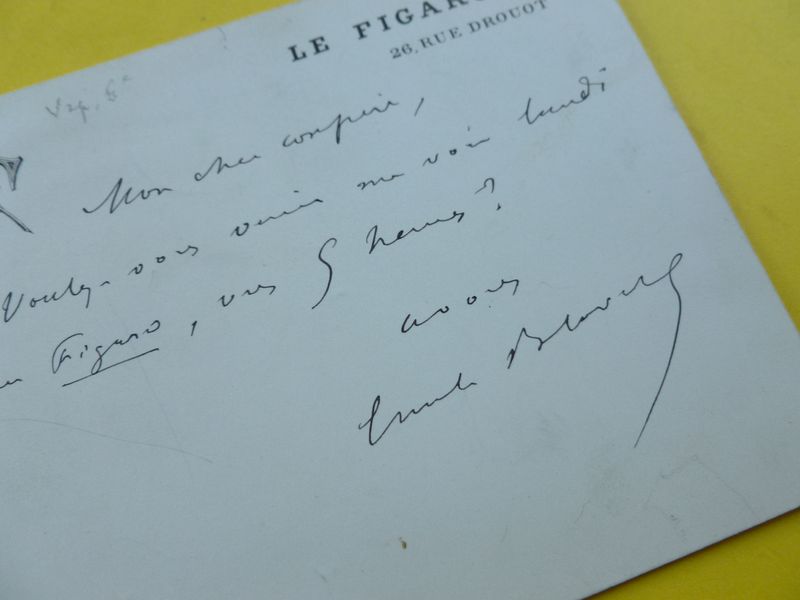 LE FIGARO
26, RUE DROUOT
Mon cher compère,
Voulez-vous venir me voir lundi
au Figaro, vers 5 heures?
à vous
Emile Blavet